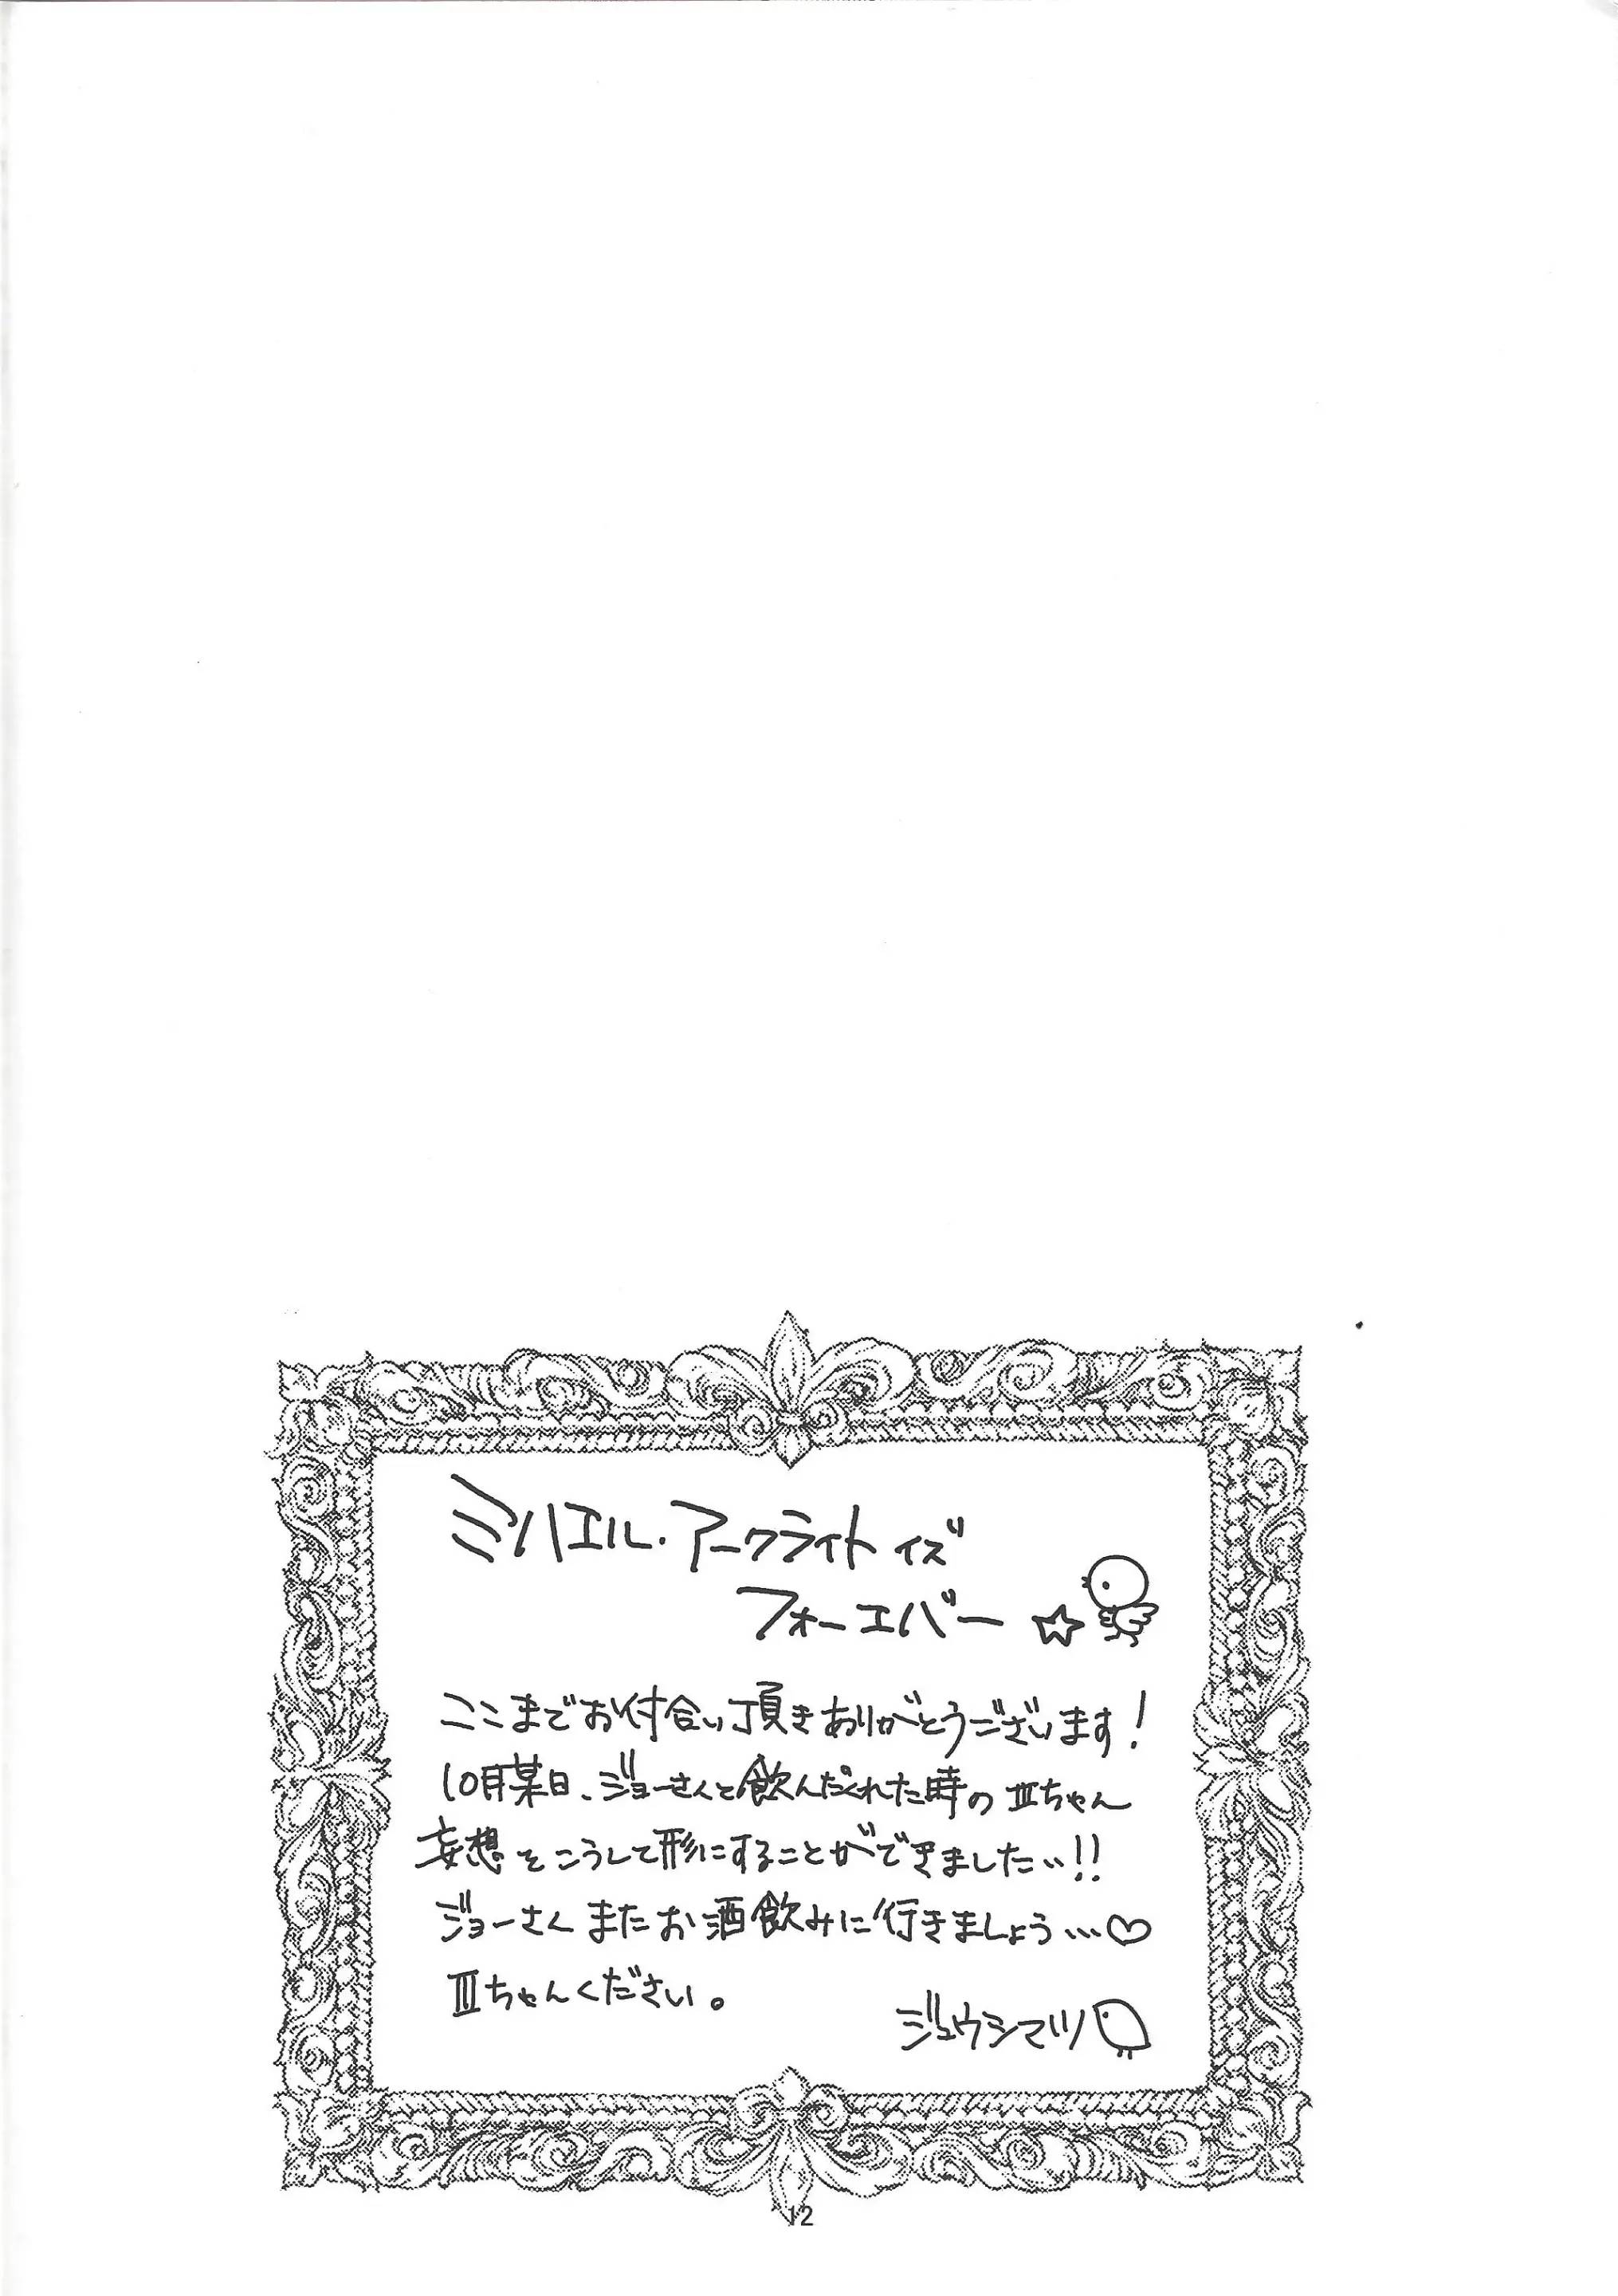 ミハエル・アークライト イズ
フォーエバー ☆
ここまでお付合い頂きありがとうございます!
10月某日、ジョーさんと飲んだくれた時のⅢちゃん
妄想をこうして形にすることができましたぃ!!
ジョーさんまたお酒飲みに行きましょう…♡
Ⅲちゃんください。
ジュウシマツ
12